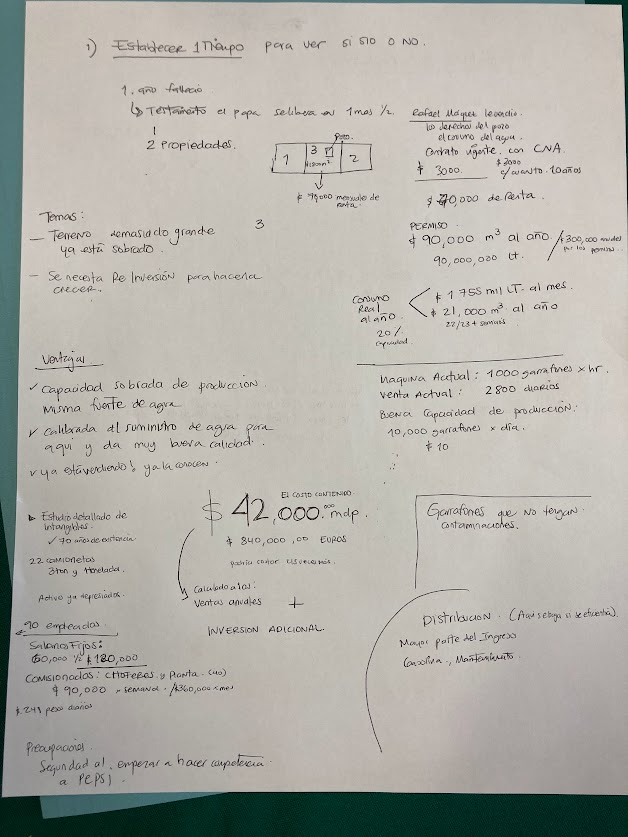 1) Establecer 1 Tiempo para ver si SIO o NO.
1. año fallecio
↳ Testamento el papa se libera en 1 mes 1/2.
2 Propiedades.
1 3 2
Pozo.
1800 m²
$ 70000 mensuales de renta.
Rafael Márquez
los derechos del pozo
el consumo del agua.
Contrato vigente. con CNA.
$ 3000.
$ 3000
10 años
$ 70,000 de Renta.
Temas:
— Terreno demasiado grande
ya está sobrado.
3
— Se necesita Re Inversión para hacerla
crecer.
PERMISO
$ 90,000 m³ al año.
90,000,000 Lt.
/$300,000
por los permisos.
Consumo
Real
al año.
20%
capacidad.
$ 1 755 mil LT. al mes.
$ 21,000 m³ al año
22/23 + semanas
Ventajas
✓ Capacidad sobrada de producción.
misma fuente de agua
✓ Calibrada el suministro de agua para
aqui y da muy buena calidad.
✓ ya está vendiendo! ya la conocen.
Maquina Actual: 1000 garrafones x hr.
Venta Actual: 2800 diarios
Buena Capacidad de producción:
10,000 garrafones x dia.
$ 10
▸ Estudio detallado de
Intangibles.
✓ 70 años de existencia
22 camionetas
3 ton y tonelada.
Activo ya depreciados.
El costo contenido
$ 42,000.000 mdp.
$ 840,000,00 EUROS
podria contar
Calculado a las:
Ventas anuales +
INVERSION ADICIONAL.
Garrafones que no tengan
contaminaciones.
90 empleados.
Salarios Fijos:
60,000 1/2 $ 180,000
Comisionados: CHOFERES. y Planta. (40)
$ 90,000 x semanal. /$360,000 x mes
$ 248 pesos diarios
Distribucion. (Aun se baja si se eficienta).
Mayor parte del Ingreso
Gasolina., Mantenimiento
Preocupaciones.
Seguridad al. empezar a hacer competencia
a PEPSI.